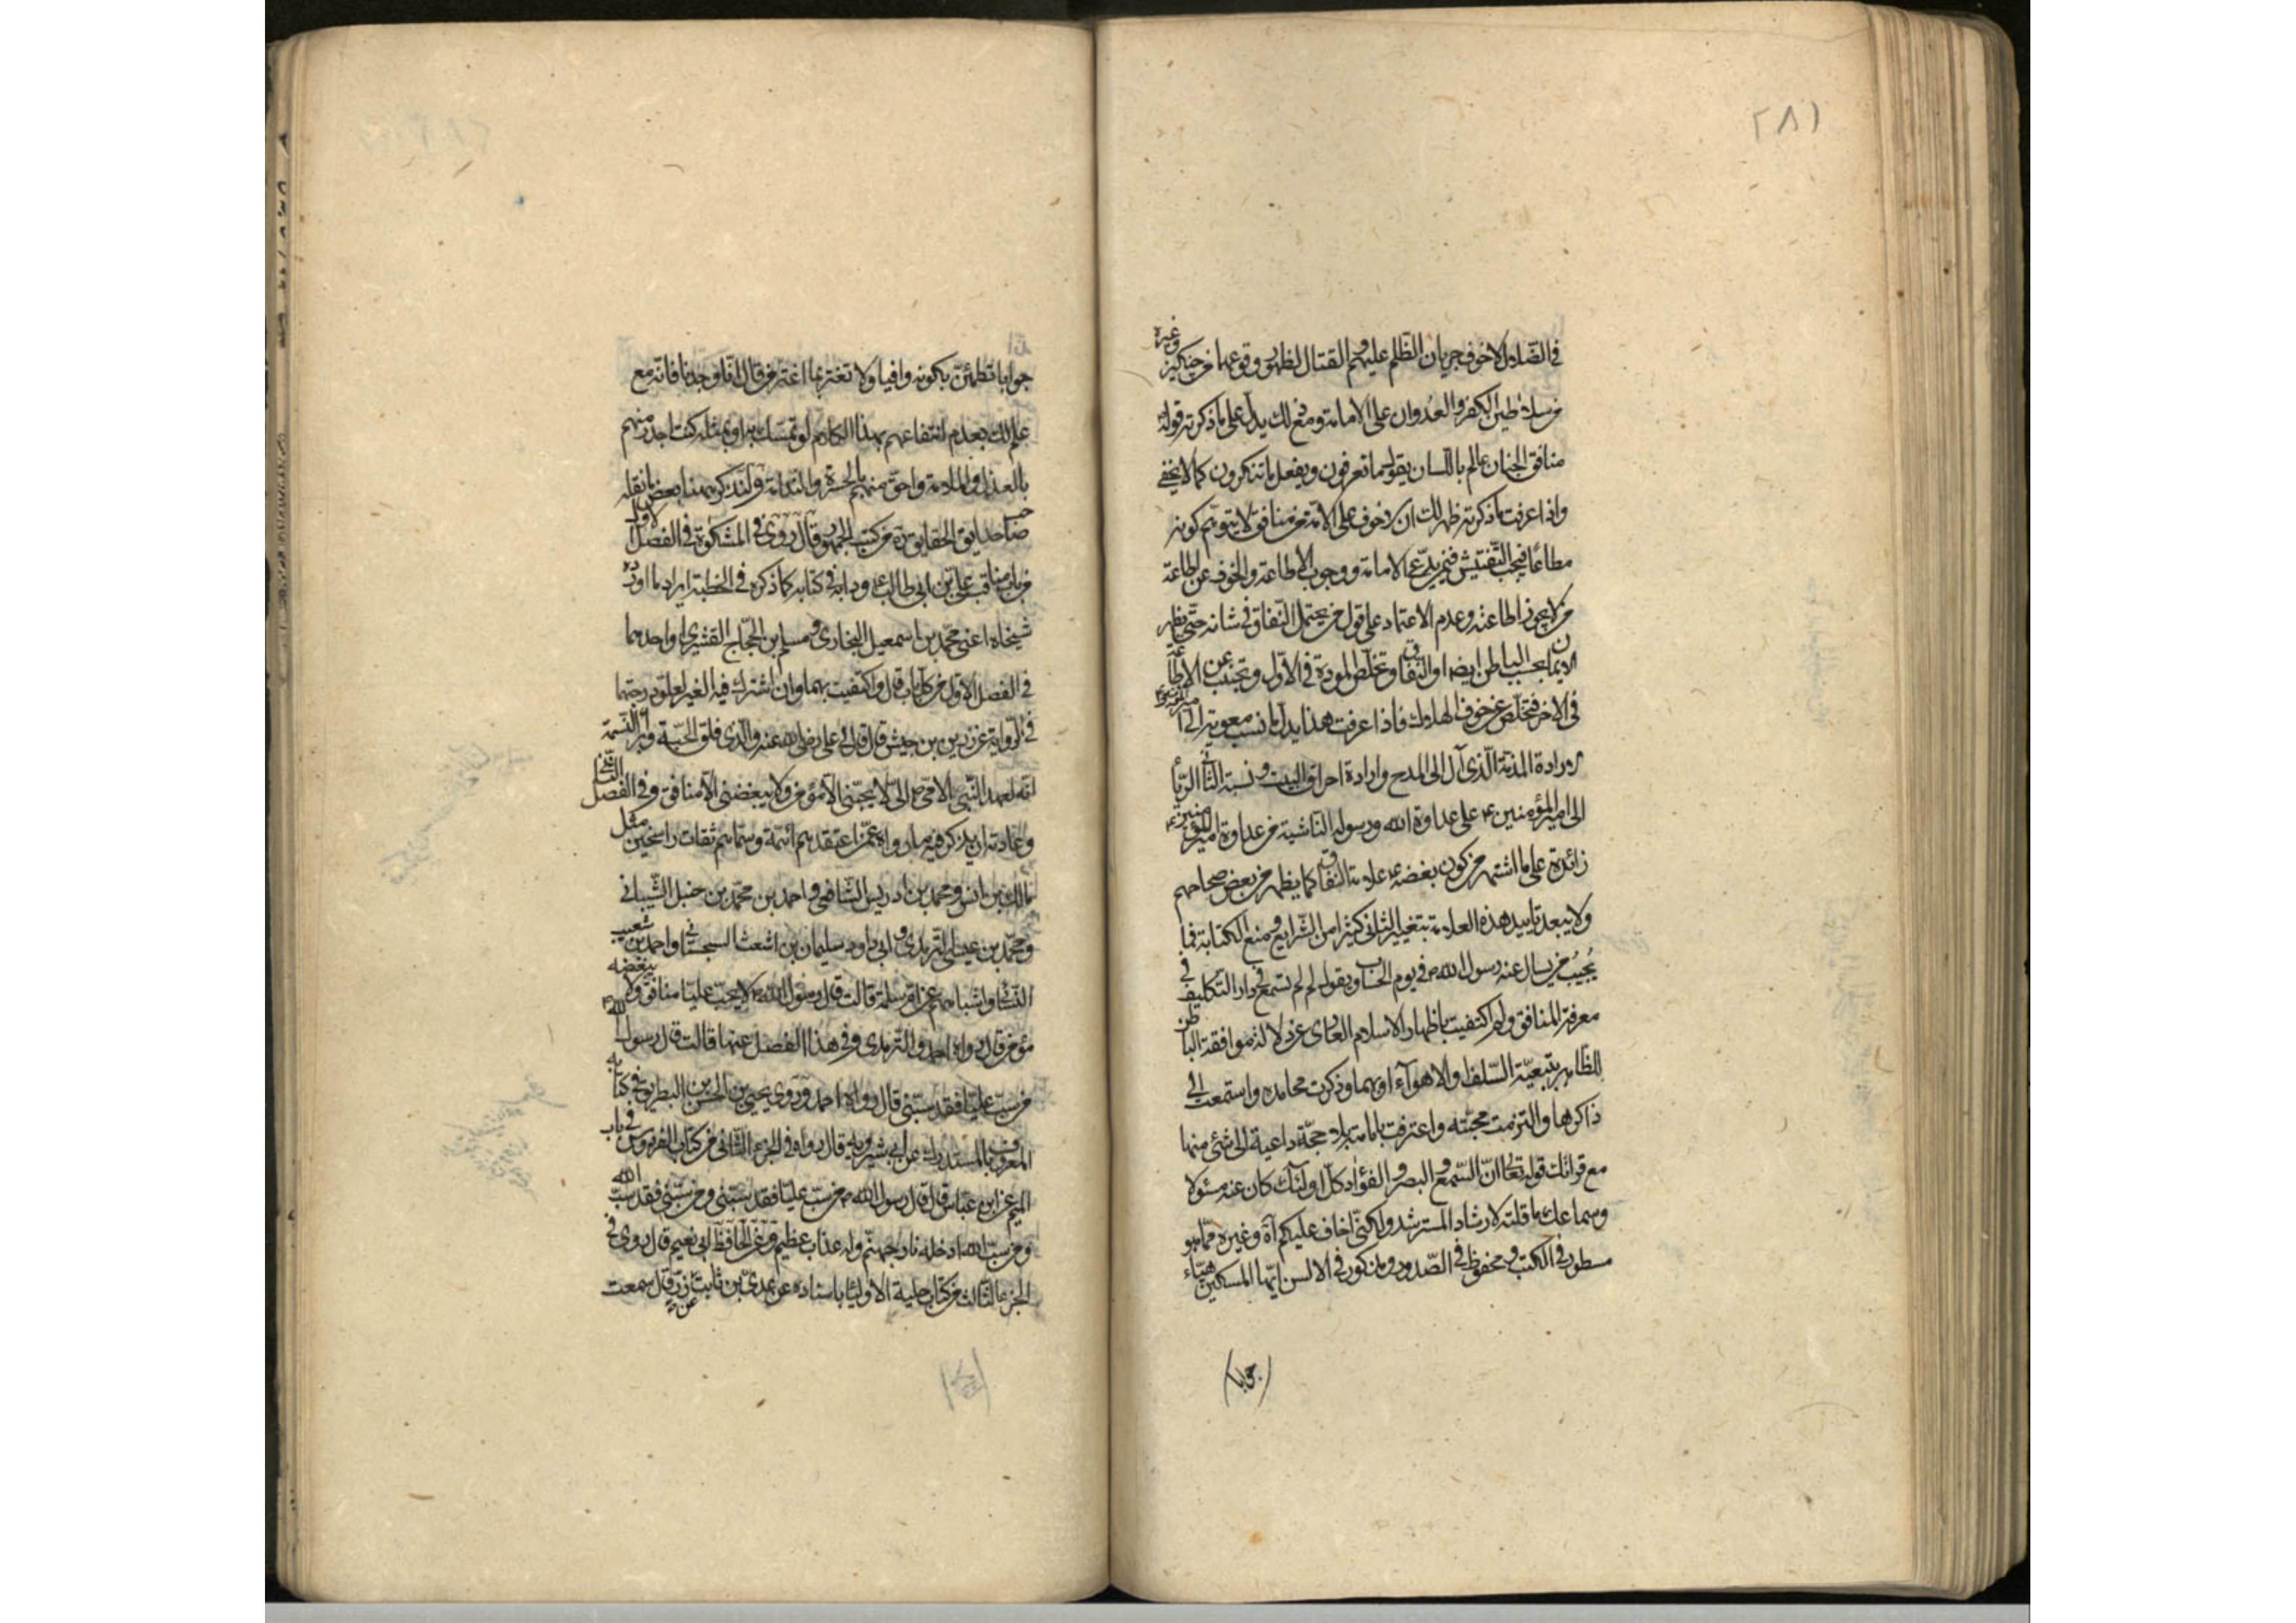 ٢٨١
في الضلال لا خوف جريان الظلم عليهم والقتال لظهور وقوعهما من چنكيز وغيره
من سلاطين الكفر والعدوان على الامامة ومع ذلك يدل على ما ذكرته قوله
منافق الجنان عالم باللسان يقول ما تعرفون ويفعل ما تنكرون كما لا يخفى
واذا عرفت ما ذكرته ظهر لك ان لا خوف على الامة من منافق لا يتوهم كونه
مطاعا فيجب التفتيش فيمن يدعى الامامة ووجوب الاطاعة والخوف عن اطاعة
من لا يجوز اطاعته وعدم الاعتماد على قول من يحتمل النفاق في شانه حتى يظهر
الايمان بحسب الباطن ايضا او النفاق وتخلص المودة في الاول وتجتنب عن الاطاعة
في الاخر فتخلص عن خوف الهلاك فاذا عرفت هذا يدل ما نسب معوية الى امير المؤمنين ع
من ارادة المذمة الذى آل الى المدح وارادة احراق البيت ونسبة الثانى الرياء
الى امير المؤمنين ع على عداوة الله ورسوله الناشية من عداوة امير المؤمنين ع
زائدة على ما اشتهر من كون بغضه ع علامة النفاق كما يظهر من بعض صحاحهم
ولا يبعد تاييد هذه العلامة بتغيير الثانى كثيرا من الشرايع ومنع الكتابة فما
يجيب من يسال عنه رسول الله ص في يوم الحساب ويقول لم لم تسمع في دار التكليف في
معرفة المنافق ولم اكتفيت باظهار الاسلام العارى عن دلالة موافقة الباطن
للظاهر بتبعية السلف والاهوآء او بهما وذكرت محامده واستمعت الى
ذاكرها والتزمت محبته واعترفت بامامته بلا حجة داعية الى شئ منها
مع قرائتك قوله تعالى ان السمع والبصر والفؤاد كل اولئك كان عنه مسئولا
وسماعك ما قلته لارشاد المسترشد ولكنى اخاف عليكم آه وغيره مما هو
مسطور في الكتب ومحفوظ في الصدور ومذكور في الالسن ايها المسكين هيّاء
جوابا
جوابا تطمئن بكونه وافيا ولا تغتر بما اغتر من قال انا وجدنا فانه مع
علم لك بعدم انتفاعهم بهذا الكلام لو تمسك به او بمثله كنت اجدر منهم
بالعذاب والملامة واحق منهم بالحسرة والندامة ولنذكر ههنا بعض ما نقله
صاحب حدايق الحقايق ره من كتب الجمهور قال روى في المشكوة في الفصل الاول
من باب مناقب على بن ابى طالب ع ودابه في كتابه كما ذكره في الخطبة ايراد ما اورده
شيخاه اعنى محمد بن اسمعيل البخارى ومسلم بن الحجاج القشيرى او احدهما
في الفصل الاول من كل باب قال واكتفيت بهما وان اشترك فيه الغير لعلو درجتهما
في الرواية عن زر بن حبيش قال قال لى على رضى الله عنه والذى فلق الحبة وبرأ النسمة
انه لعهد النبى الامى ص الى لا يحبنى الا مؤمن ولا يبغضنى الا منافق وفي الفصل الثانى
وعادته ان يذكر فيه ما رواه عمن اعتقدهم ائمة وسماهم ثقات راسخين مثل
مالك بن انس ومحمد بن ادريس الشافعى واحمد بن محمد بن حنبل الشيبانى
ومحمد بن عيسى الترمذى وابى داود سليمان بن اشعث السجستانى واحمد بن شعيب
النسائى واشباههم عن ام سلمة قالت قال رسول الله ص لا يحب عليا منافق ولا يبغضه
مؤمن قال رواه احمد والترمذى وفي هذا الفصل عنها قالت قال رسول الله ص
من سب عليا فقد سبنى قال رواه احمد وروى يحيى بن الحسن بن البطريق في كتابه
المعروف بالمستدرك عن ابن شيرويه قال رواه في الجزء الثانى من كتاب الفردوس في باب
الميم عن ابن عباس قال قال رسول الله ص من سب عليا فقد سبنى ومن سبنى فقد سب الله
ومن سب الله ادخله نار جهنم وله عذاب عظيم وعن الحافظ ابى نعيم قال روى في
الجزء الثالث من كتاب حلية الاوليا باسناده عن عدى بن ثابت عن زر قال سمعت